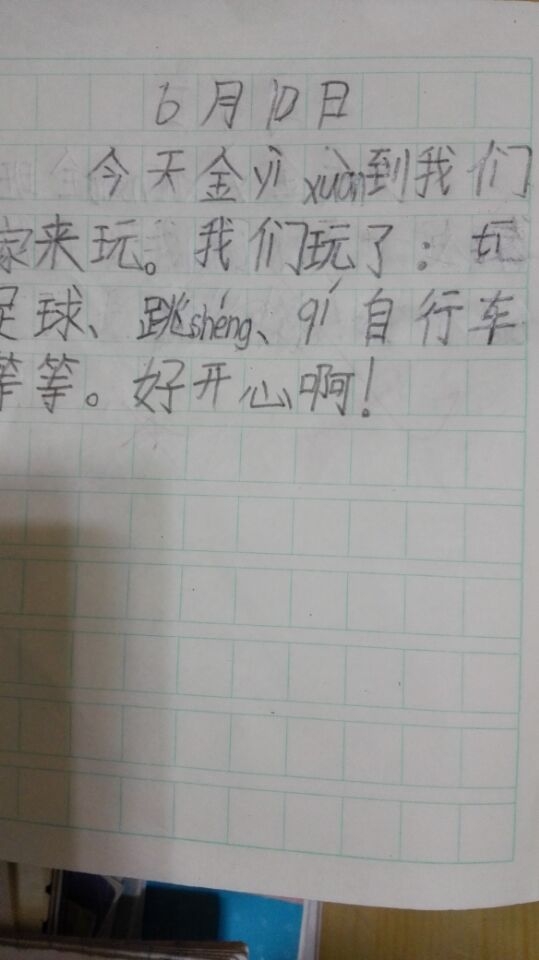 6月10日
今天金yì xuān到我们
家来玩。我们玩了：玩
足球、跳shéng、qí自行车
等等。好开心啊！